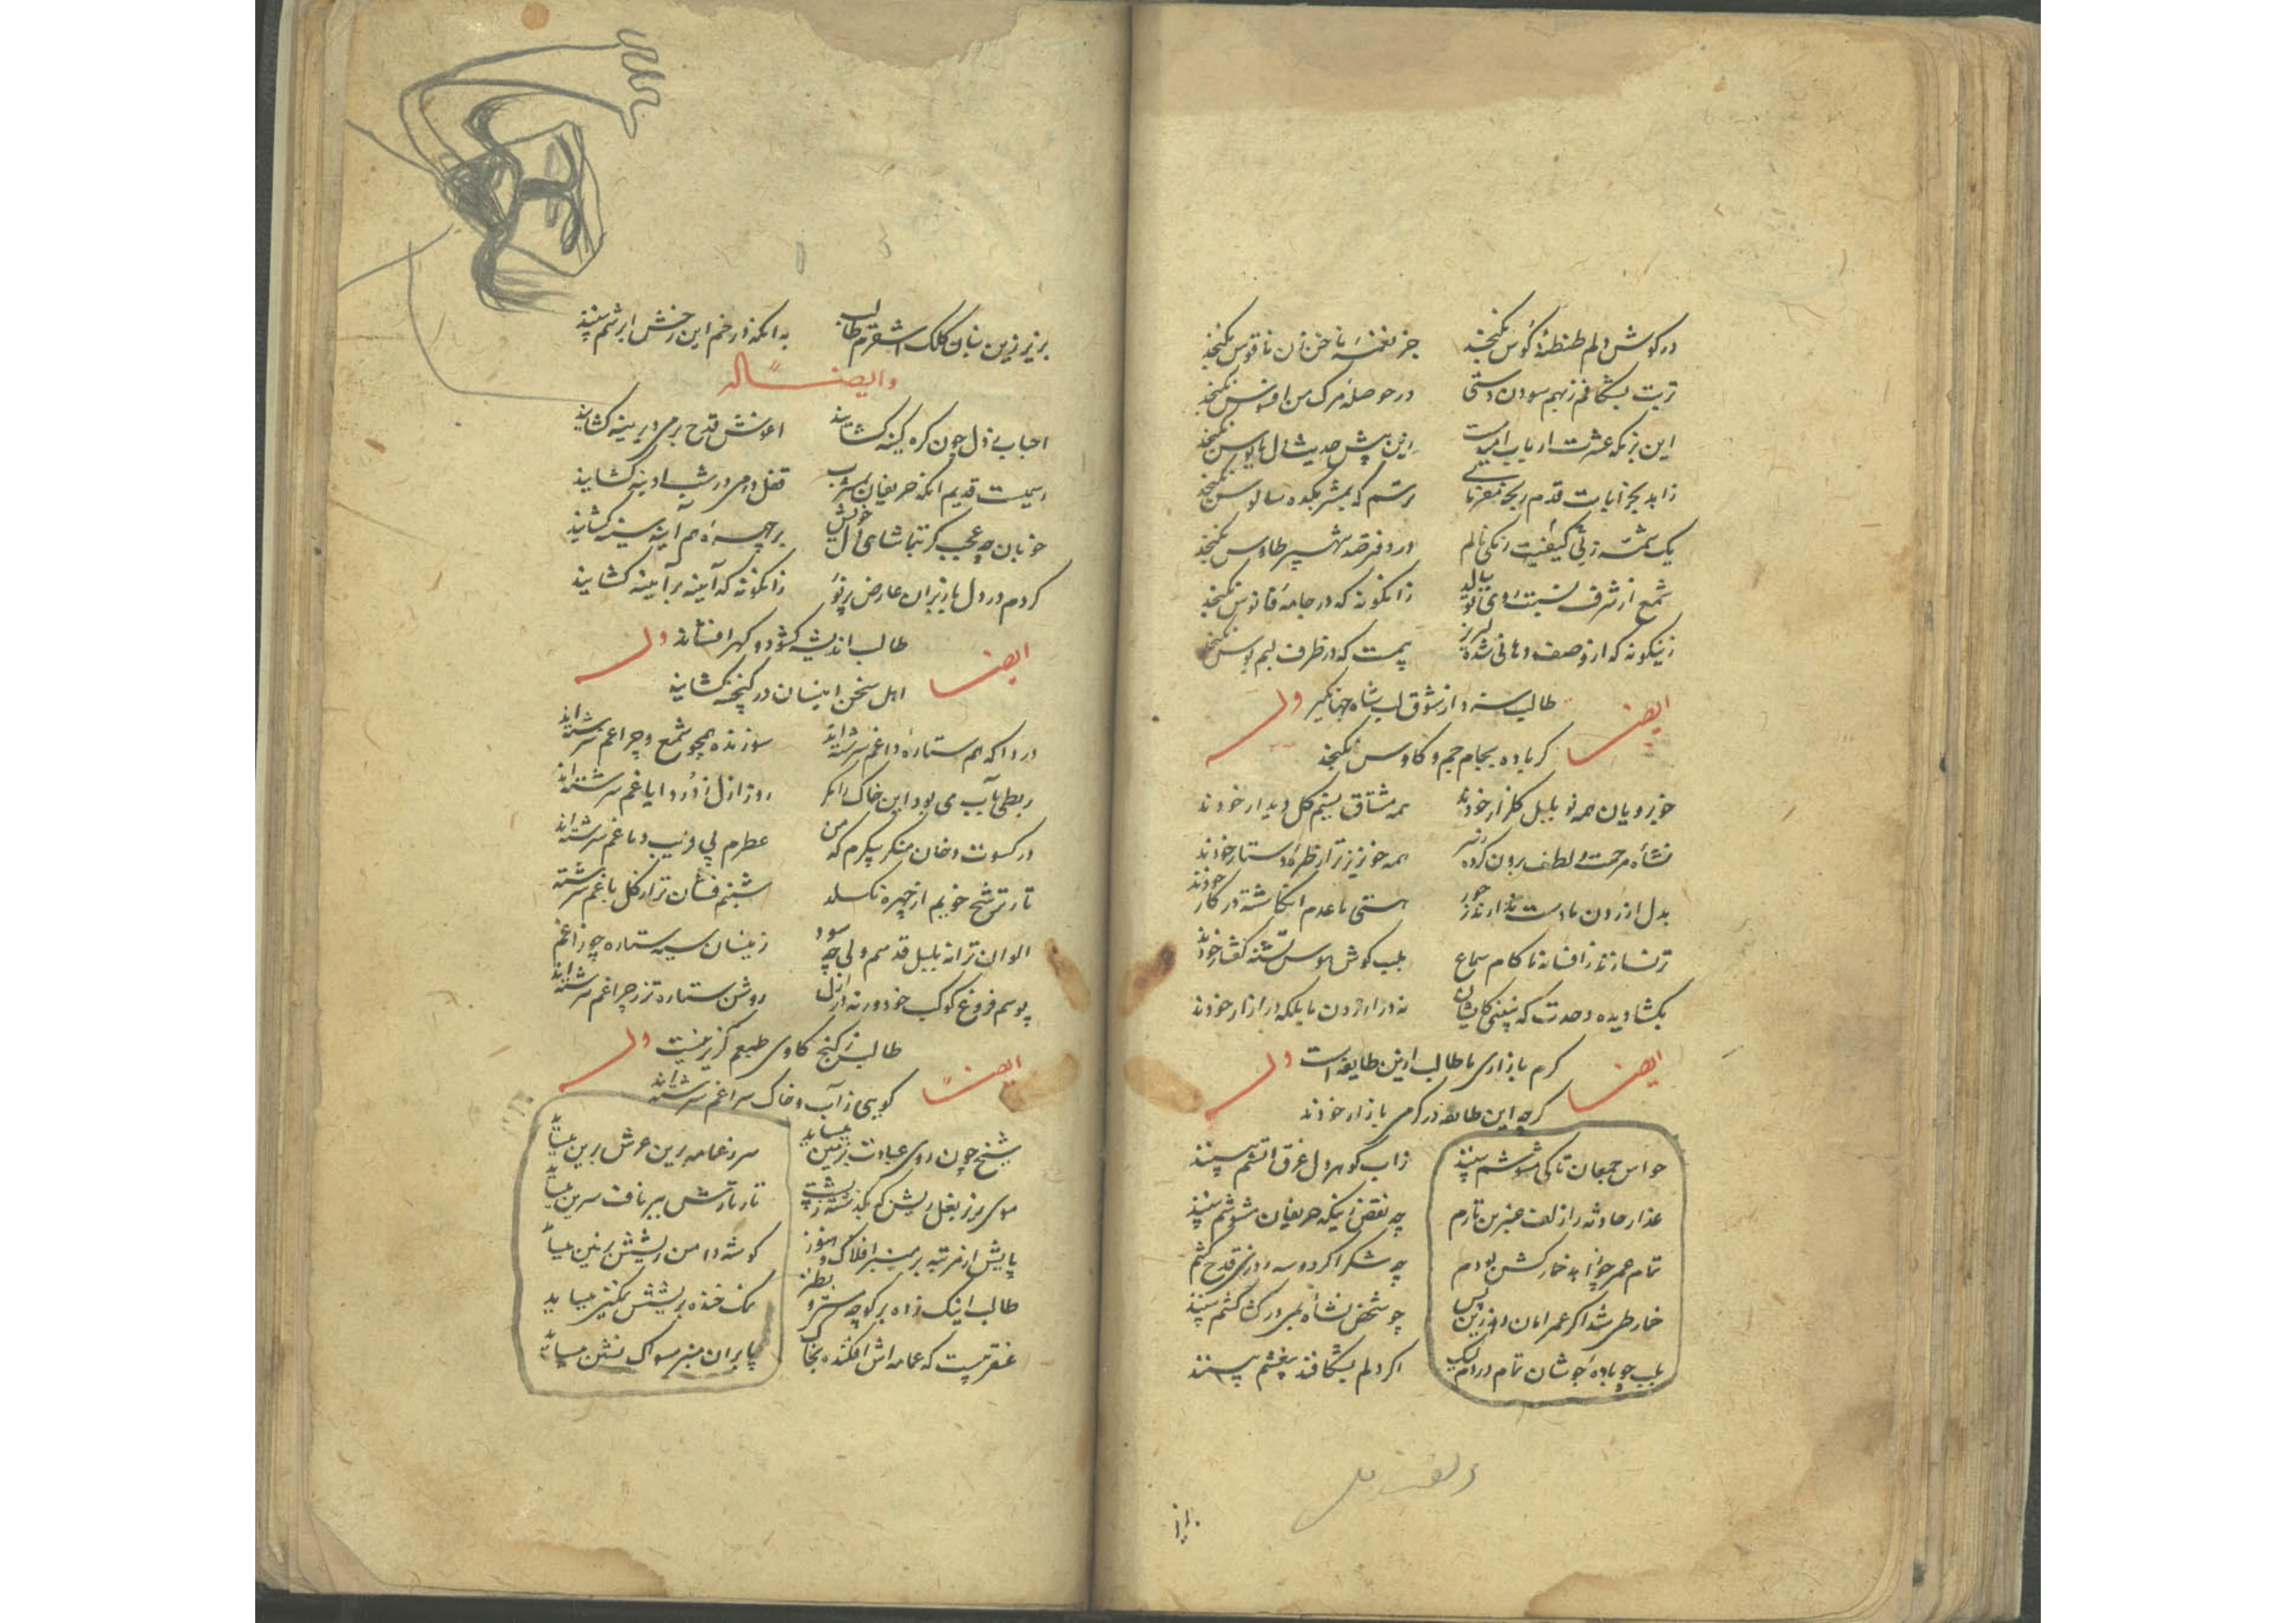 در کوش دلم طنطنهٔ کوس نکنجد جز نغمهٔ ناخن زن ناقوس نکنجد
تربت بشکافم زبهم سودن دستی در حوصلهٔ مرک من افسوس نکنجد
این بزمکه عشرت ارباب امیدست زین پیش حدیث دل مایوس نکنجد
زاهد بخرابات قدم رنجه نکنجد
یک شمه زبی کیفیت رنکی نالم در دفتر صد شهپر طاوس نکنجد
شمع از شرف نسبت روی تو ببالد زانکونه که در جامهٔ فانوس نکنجد
زینکونه که از وصف دهانی شده لبریز پیمست که در ظرف لبم بوس نکنجد
ایضا طالب شنود از شوق لب شاه جهانکیر وله
کر باده بجام جم و کاوس نکنجد
خوبرویان همه نو بلبل کلزار خودند همه مشتاق نسیم کل دیدار خودند
نشاه مرحمت و لطف برون کرده زسر همه خونریز تر از طرهٔ دستار خودند
بدل ازردن ما دست ندارند ز جور هستی ما عدم انکاشته در کار خودند
تر نسازند ز افسانه ما کام سماع بلب کوش هوس تشنه کفتار خودند
بکشا دیده وحدت که ببینی کایشان نه در ازردن ما بلکه در ازار خودند
ایضا کرم بازاری ما طالب ازین طایفه است وله
کرچه این طایفه در کرمی بازار خودند
حواس جمعان تا کی مشوشم بینند ز اب کوهر دل غرق اتشم بینند
عذار حادثه را زلف عنبرین تارم چه نقص زینکه حریفان مشوشم بینند
تمام عمر چو اید خمارکش بودم چه شد اکر دوسه روزی قدح کشم
خمار طی شد اکر عمر امان دهد زین پس چو شخص نشاه بمی در کشاکشم بینند
بلب چو بادهٔ جوشان تمام دردم لیک اکر دلم بشکافند بیغشم بینند
بریز زین بنان کلک اشقرم طالب به انکه زار خم این رخش ابرشم بینند
وایضا له
احباب ز دل چون کره کینه کشایند اغوش قدح بر می دیرینه کشایند
رسمیست قدیم انکه حریفان بشراب قفل در می در شب ادینه کشایند
خوبان چه عجب کر تماشای دل خویش بر چهره هم آینه سینه کشایند
کردم در دل باز بران عارض پرنور زانکونه که آینه بر آینه کشایند
ایضا طالب اندیشه کشود و کهر افشاند وله
اهل سخن اینسان در کنجینه کشایند
دردا که هم ستارهٔ داغم سرشته‌اند سوزنده همچو شمع و چراغم سرشته‌اند
ربطی بآب می بود این خاک را مکر روز ازل ز درد ایاغم سرشته‌اند
در کسوت دخان منکر پیکرم که من عطرم پی فریب دماغم سرشته‌اند
تار ترشح خویم از چهره نکسلد شبنم فشان تر از کل باغم سرشته
الوان ترانه بلبل قدسم ولی چه سود زینسان سیه ستاره چو زاغم
پوسم فروغ کوکب خود ورنه در ازل روشن ستاره تر ز چراغم سرشته‌اند
ایضا طالب ز کنج کاوی طبعم کزیر نیست وله
کویی ز آب و خاک سراغم سرشته‌اند
شیخ چون روی عبادت بزمین میساید سر عمامه برین عرش برین میساید
موی پر ز بغل ریش که بکذشته ز پشت تار تارش بر ناف سرین میساید
پایش از مرتبه بر منبر افلاک و هنوز کوشه دامن ریشش بزمین میساید
طالب اینک زده بر کوچه نمک خنده بریشش نمکین میساید
عنقریبست که عمامه‌اش افکنده بخاک پا بران منبر مسواک نشین میساید